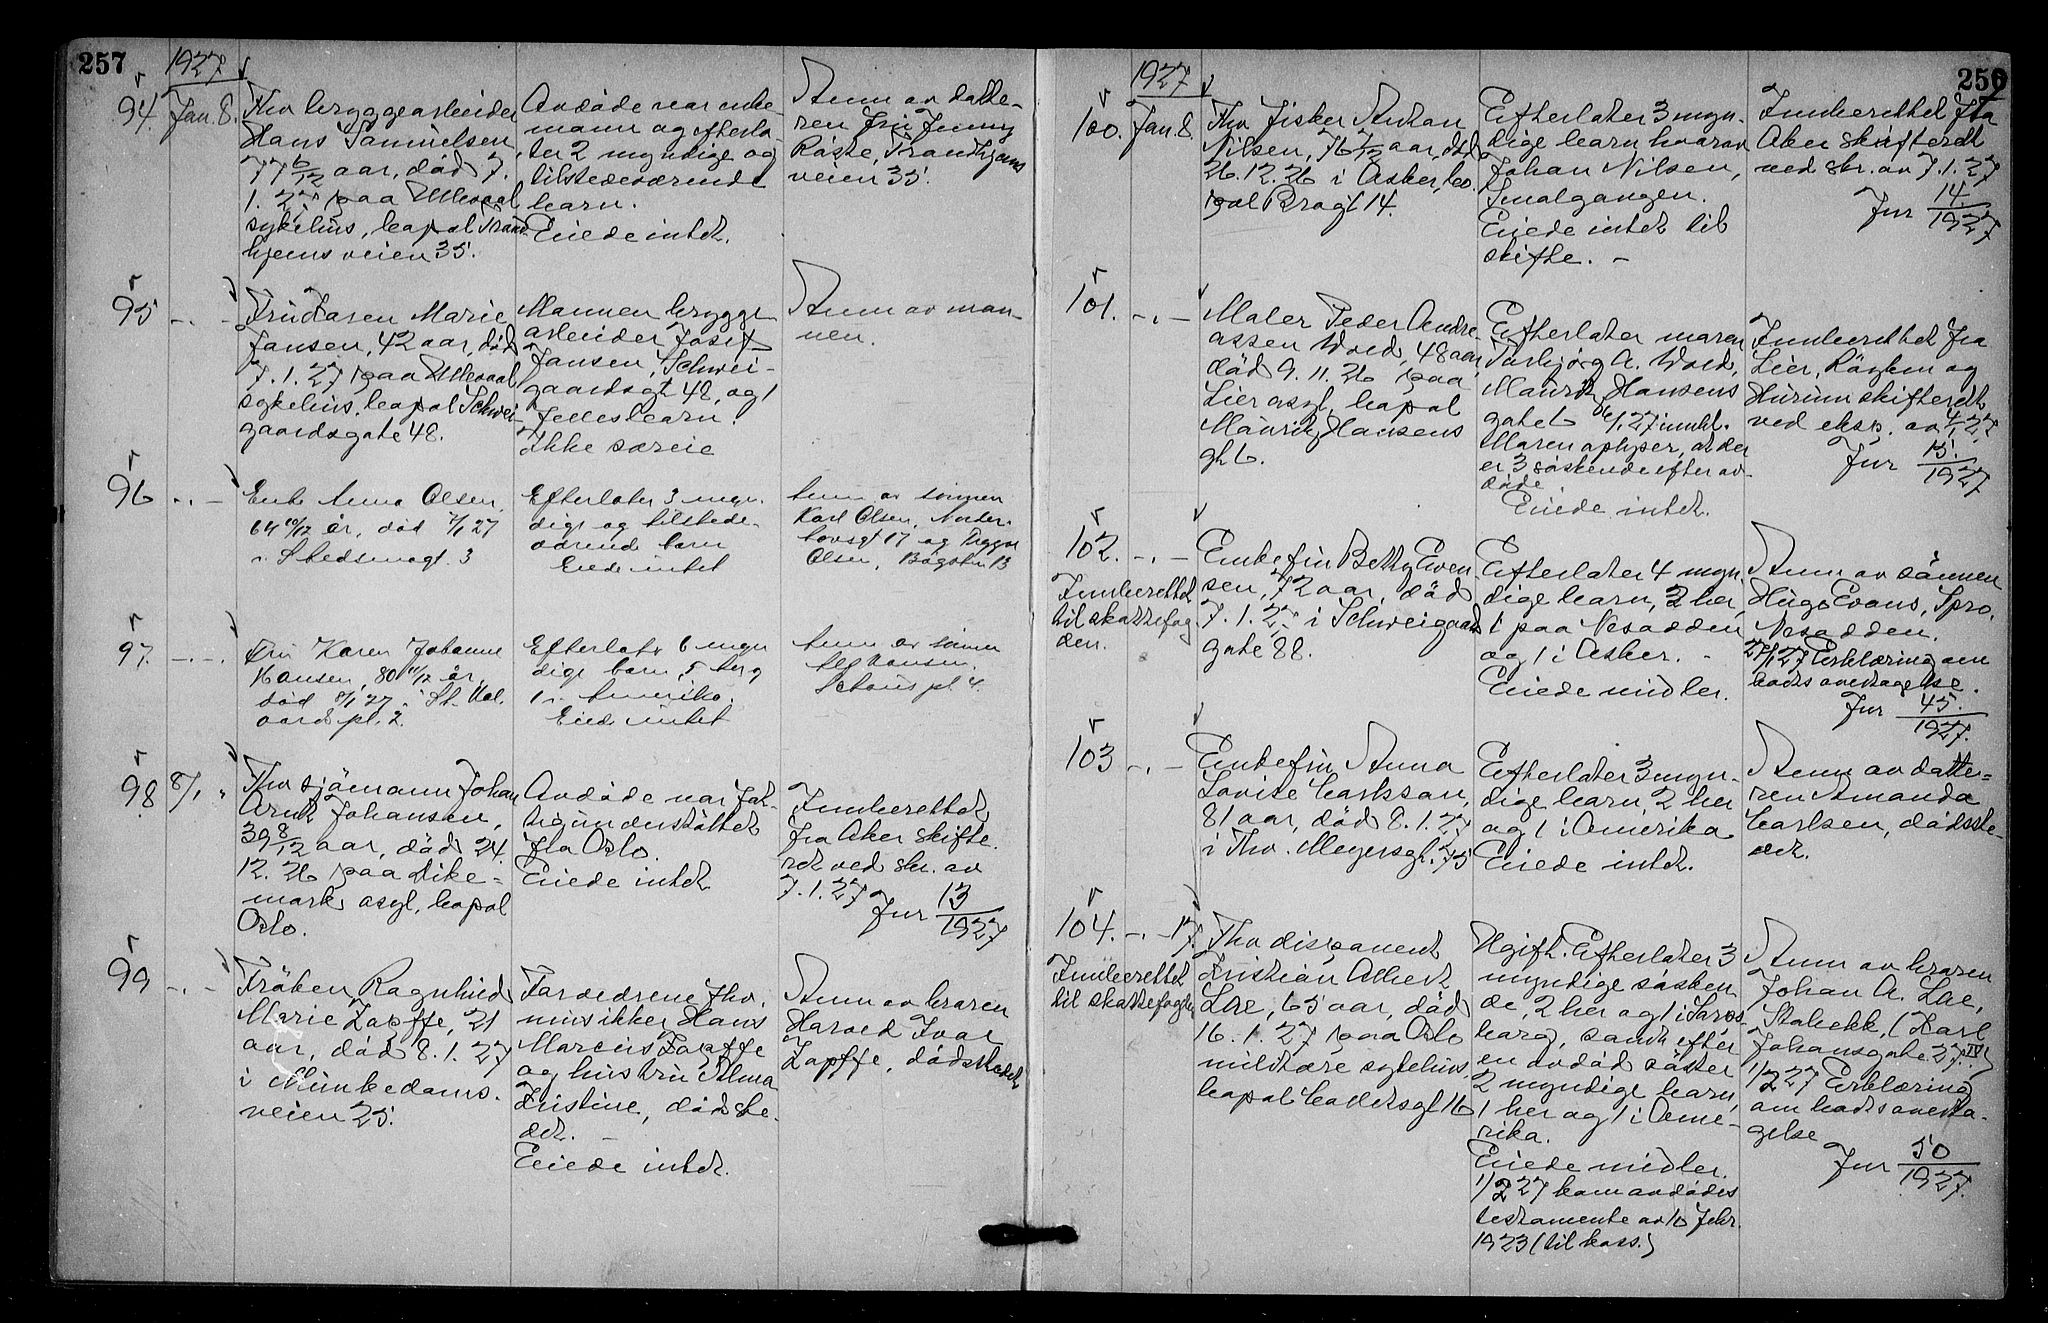 257
1927
94. Jan. 8.
Fhv bryggearbeider
Hans Samuelsen,
77 6/12 aar, död 7.
1. 27 paa Ullevaal
sykehus, bopal Trond
hjems veien 35.
Avdöde var enke-
mann og efterla-
ter 2 myndige og
tilstedeværende
barn.
Eiede intet.
Anm av datte-
ren Jenny
Trondhjems
veien 35.
95 -.-
Fru Marie
Jansen, 42 aar, död
7.1.27 paa Ullevaal
sykehus, bopal Schwei
gaardsgate 48.
Mannen brygge
arbeider Josef
Jansen, Schwei-
gaardsgt 48, og 1
felles barn.
Ikke særeie
Anm av man-
nen.
96 -.-
Enke Anna Olsen,
64 10/12 år, död 7/1 27
i Stedsmogt. 3
Efterlater 3 myn-
dige og tilstede-
værende barn
Eiede intet
Anm av sönnen
Karl Olsen,
17 og
Olsen, 13
97. -.-
Fru Karen Johanne
Hansen, 80 11/12 år,
död 8/1 27 i St. Hal.
vards pl. 2.
Efterlater 6 myn
dige barn, 5 her og
1 i Amerika.
Eiede intet
Anm av sönnen
Hansen,
Schous pl. 4.
98. 8/1 "
Fhv sjömann Johan
Arnt Johansen,
39 8/12 aar, död 24.
12. 26 paa Dike-
mark asyl, bopal
Oslo.
Avdöde var fat-
tigunderstöttet
fra Oslo.
Eiede intet
Innberettet
fra Aker skifte-
ret ved skr. av
7.1.27
Jnr 13/1927
99 -.-
Fröken Ragnhild
Marie Zapffe, 21
aar, död 8.1.27
i Munkedams-
veien 25.
Forældrene fhv.
musikker Hans
Marcus Zapffe
og hustru Alma
Kristine, dödste-
det. -
Eiede intet.
Anm av broren
Harald Ivar
Zapffe, dödstedet
256
1927
100. Jan. 8
Fhv fisker Anton
Nilsen, 76 7/12 aar, död
26.12.26 i Asker, bo-
pal Bragt 14.
Efterlater 3 myn-
dige barn hvorav
Johan Nilsen,
Smalgangen.
Eiede intet til
skifte. -
Innberettet fra
Aker skifterett
ved skr. av 7.1.27
Jnr 14/1927
101. -.-
Maler Peder Andre-
assen Wold, 48 aar
död 9.11.26 paa
Lier asyl, bopal
Maurits Hansens
gt 6.
Efterlater moren
Torbjörg A. Wold,
Maurits Hansens
gate 6 6/1 27 innkl.
Moren oplyser, at der
er 3 söskende efter av-
döde
Eiede intet.
Innberettet fra
Lier, Röyken og
Hurum skifterett
ved eksp. av 4/1 27
Jnr 15/1927
102. -.-
Innberettet
til skattefog
den.
Enkefru Betty Even
sen, 72 aar, död
7.1.27 i Schweigaards
gate 88.
Efterlater 4 myn-
dige barn, 2 her,
1 paa Nesodden
og 1 i Asker. -
Eiede midler.
Anm av sönnen
Hugo Evans, Spro,
Nesodden.
27/1 27 Erklæring om
bodts overtagelse.
Jnr 45/1927.
103 -.-
Enkefru Anna
Lovise Carlsson,
81 aar, död 8.1.27
i Thv. Meyersgt. 75
Efterlater 3 myn-
dige barn, 2 her
og 1 i Amerika
Eiede intet.
Anm av datte-
ren Amanda
Carlsen, dödsste-
det.
104. -.- 17.
Innberettet
til skattefogden
Fhv disponent
Kristian Albert
Lae, 65 aar, död
16.1.27 paa Oslo
militære sykehus,
bopal Cadetsgt 16
Ugift. Efterlater 3
myndige sösken-
de, 2 her og 1 i Sarps-
borg, samt efter
en avdöd söster
2 myndige barn,
1 her og 1 i Ame-
rika.
Eiede midler.
1/2 27 kom avdödes
testamente av 10 febr.
1923 (til boss.)
Anm av broren
Johan A. Lae,
Stabekk, (Karl
Johansgate 27 IV)
1/2 27 Erklæring
om bodts overta-
gelse
Jnr 50/1927.